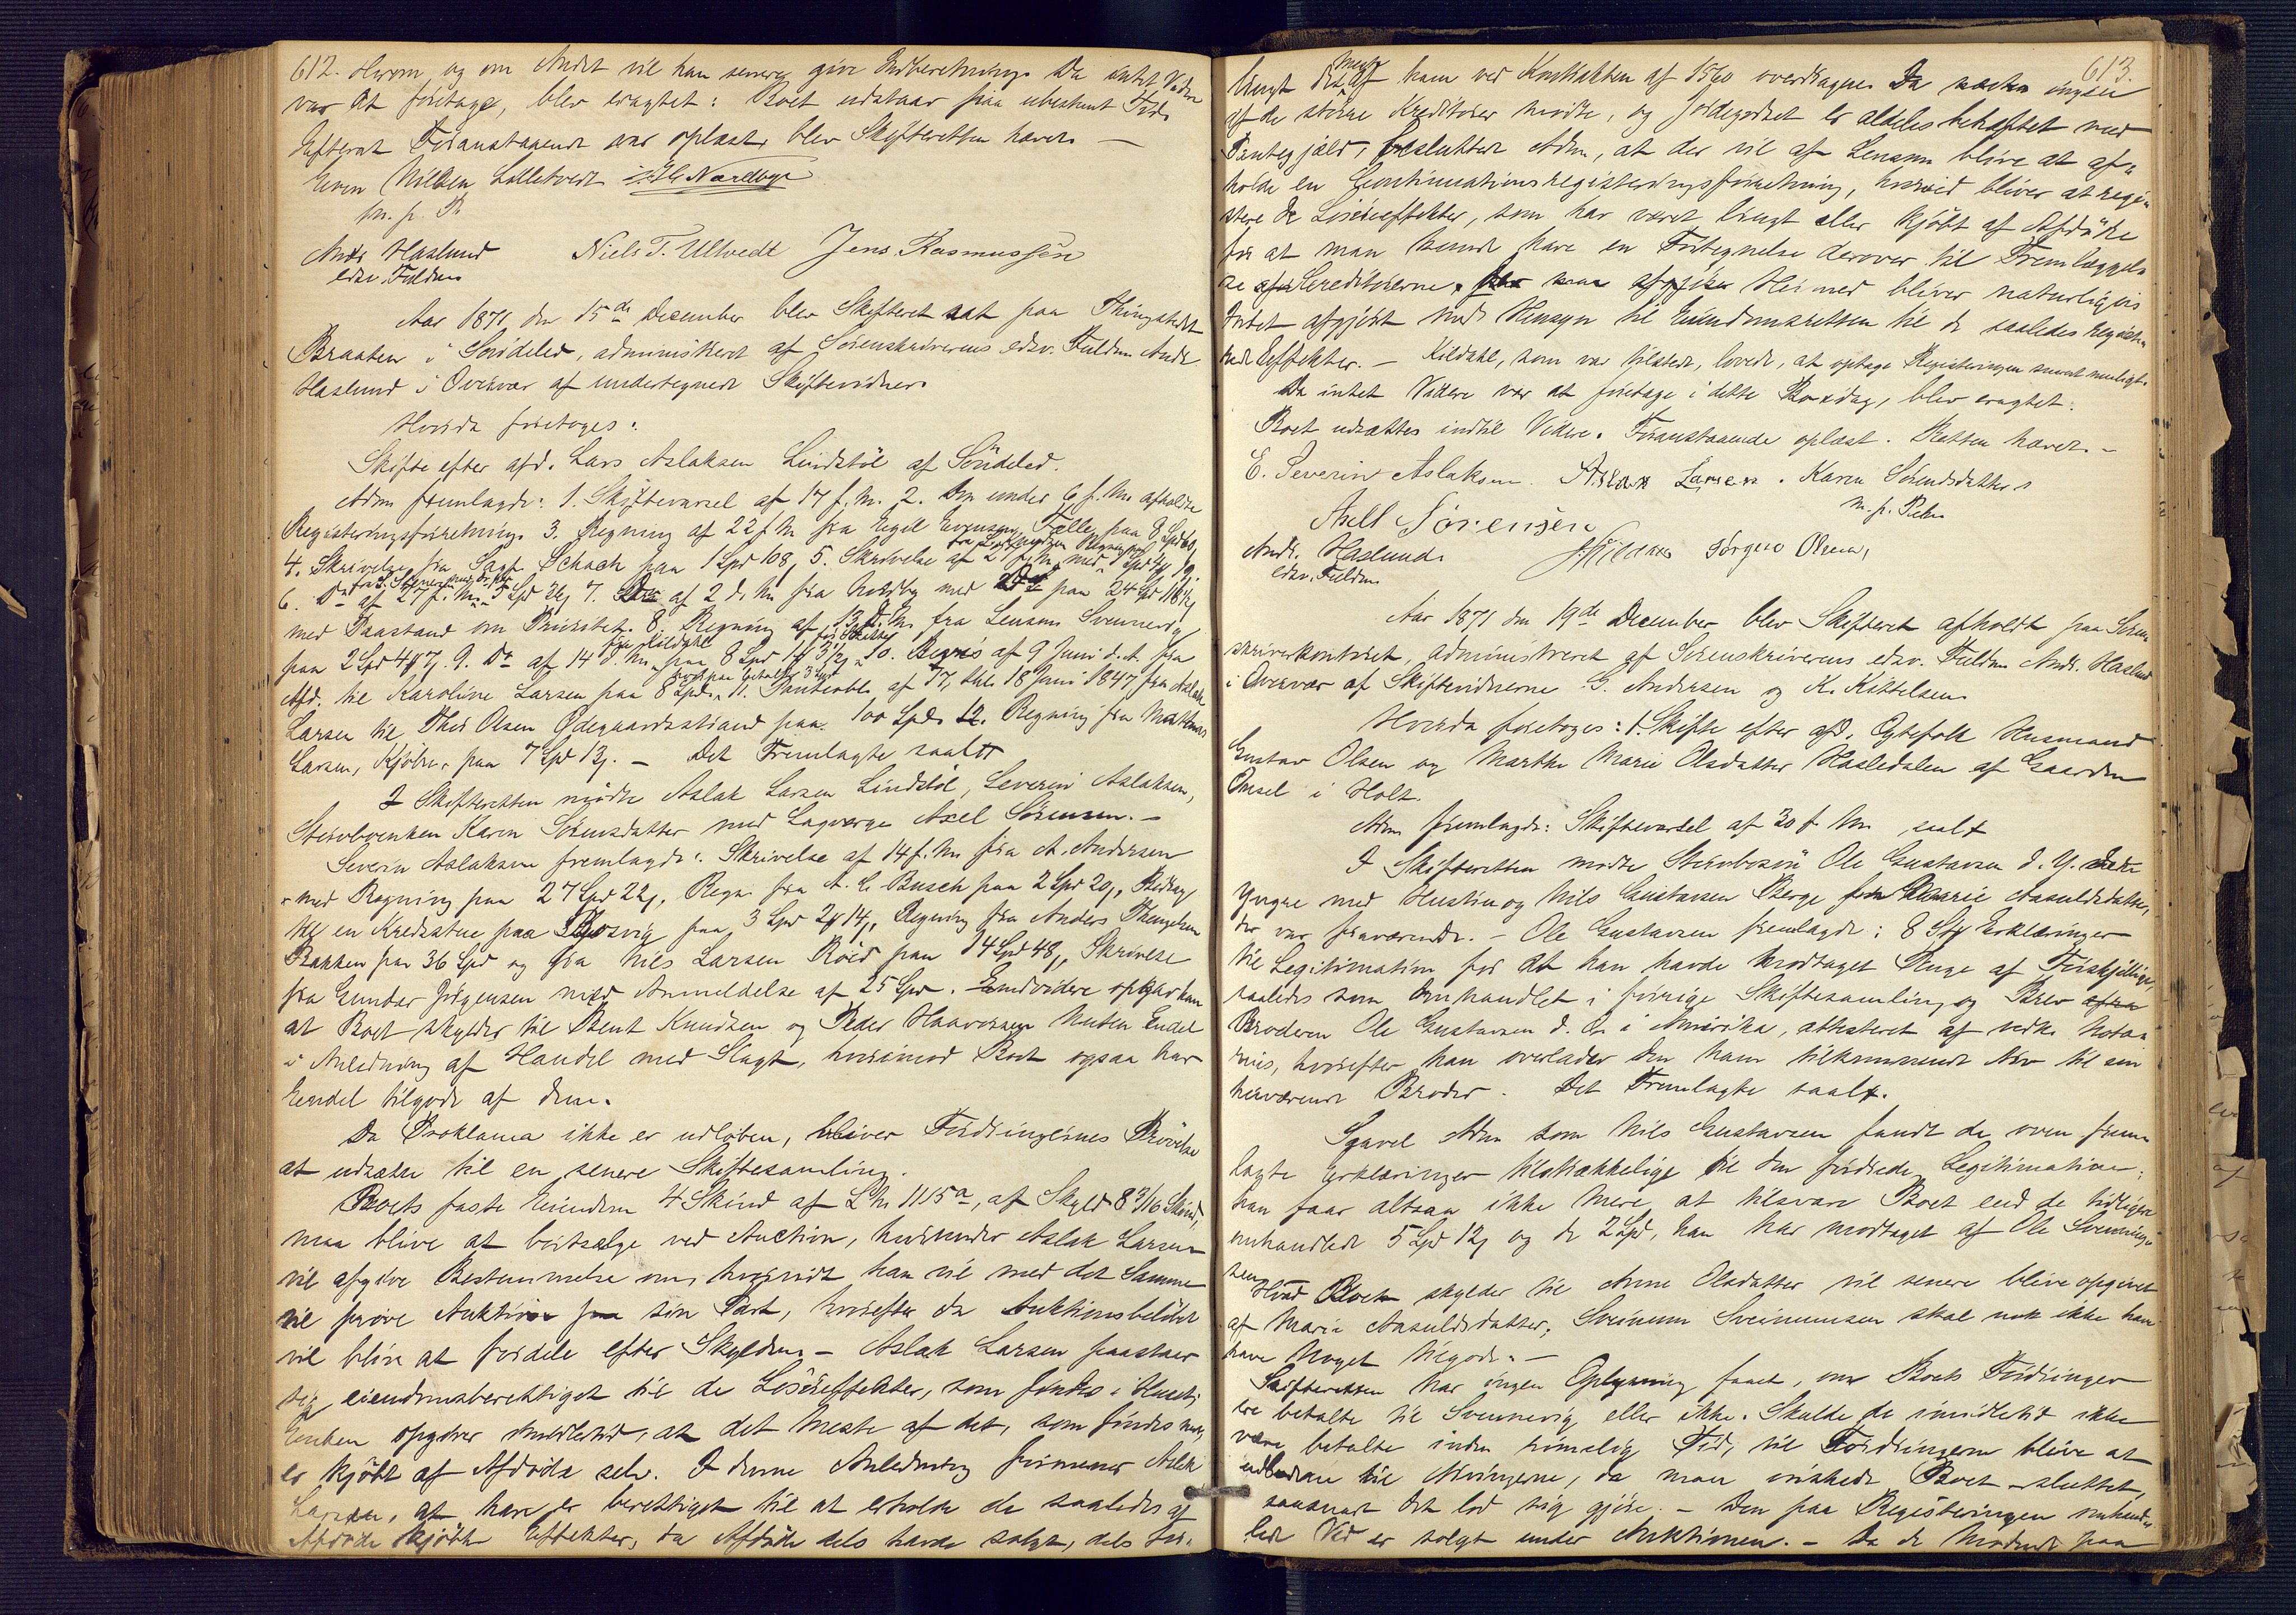 612. Herom og om Andet vil han senere give Indberetning. Da intet Videre
var at foretage, blev eragtet: Boet udstaar paa ubestemt Tid.
Efterat Foranstaaende var oplæst, blev Skifteretten hævet. —
Even Nilsen Lolletvedt
m. p. P.
Andr. Haslund Niels T. Ulltvedt Jens Rasmussen
edsv. Fuldm.
Aar 1871 den 15de December blev Skifteret sat paa Thingstedet
Braaten i Söndeled, administreret af Sorenskriverens edsv. Fuldm. Andr.
Haslund i Overvær af undertegnede Skiftevidner.
Hvorda foretoges:
Skifte efter afd. Lars Aslaksen Lindstöl af Söndeled.
Adm. fremlagde: 1. Skiftevarsel af 17 f. M. 2. Den under 6 f. M. afholdte
Registreringsforretning. 3. Regning af 22 f. M. fra Egil Evensen Fælle paa 8 Spd
4. Skrivelse fra Sagf. Schack paa 1 Spd 108, 5. Skrivelse af 21 f. M. med
6. Do af 27 f. M. 7. Do af 2 d. M. fra Nordby med paa 24 Spd
med Paastand om Prioritet. 8. Regning af 13 d. M. fra Lensm. Svennevig
paa 2 Spd 9. Do af 14 d. M. fra Kildahl paa 8 Spd 10. Bevis af 9 Juni d. A. fra
Afd. til Karoline Larsen paa 8 Spd. 11. Panteobl. af 17, thl. 18 Juni 1847, fra Aslak
Larsen til Thor Olsen Ødegaardsstrand paa 100 Spd. 12. Regning fra Mathias
Larsen, Kjöbm. paa 7 Spd 12. — Det Fremlagte saal.
I Skifteretten mödte Aslak Larsen Lindstöl, Severin Aslaksen,
Stervboenken Karen Sörensdatter med Lagværge Axel Sörensen. —
Severin Aslaksen fremlagde: Skrivelse af 14 f. M. fra A. Andersen
med Regning paa 27 Spd 22, Regn. fra A. C. Busch paa 2 Spd 20,
til en Kreditstue paa paa 3 Spd 2 14, Regning fra Anders
Bakken paa 36 Spd og fra Nils Larsen Röed paa 14 Spd 48, Skrivelse
fra Gunder Jörgensen med Anmeldelse af 25 Spd. Endvidere opgav han
at Boet skylder til Bent Knudsen og Peder Haavorsen Endel
i Anledning af Handel med Slagt, hvorimod Boet ogsaa har
Endel tilgode af dem.
Da Proklama ikke er udlöben, bliver Fordringernes Prövelse
at udsætte til en senere Skiftesamling.
Boets faste Eiendom 4 Skind af L No 115a, af Skyld 8 3/16 Skind,
maa blive at bortsælge ved Auction, hvorunder Aslak Larsen
vil afgive Bestemmelse om, hvorvidt han vil med det Samme
vil pröve Auktion paa sin Part, hvorefter da Auktionsbelöbet
vil blive at fordele efter Skylden. — Aslak Larsen paastaar
sig eiendomsberettiget til de Lösöreffekter, som findes i Huset,
Enken opgiver imidlertid, at det meste af det, som findes nu,
er kjöbt af Afdöde selv. I denne Anledning formener Aslak
Larsen, at han er berettiget til at erholde de saaledes af
Afdöde kjöbte Effekter, da Afdöde dels havde solgt, dels for-
613.
brugt det meste af ham ved Kontrakten af 1860 overdragne. Da næsten ingen
af de större Kreditorer mödte, og Jordegodset er aldeles behæftet med
Pantegjæld, besluttede Adm., at der vil af Lensm. blive at af-
holde en Continuationsregistreringsforretning, hvorved bliver at regi-
strere de Lösöreffekter, som har været brugt eller kjöbt af Afdöde
for at man kunde have en Fortegnelse derover til Fremlæggel-
se for Creditorerne. Herved bliver naturligvis
Intet afgjort med Hensyn til Eiendomsretten til de saaledes registre-
rede Effekter. — Kildahl, som var tilstede, lovede, at optage Registreringen snarest muligt.
Da intet Videre var at foretage i dette Bo idag, blev eragtet:
Boet udsættes indtil Videre. Foranstaaende oplæst. Retten hævet. —
E. Severin Aslaksen. Aslak Larsen. Karen Sörensdatter
m. p. Pen
Axell Sörensen
Andr. Haslund. Jörgen Olsen,
edsv. Fuldm.
Aar 1871 den 19de December blev Skifteret afholdt paa Soren-
skriverkontoret, administreret af Sorenskriverens edsv. Fuldm. Andr. Haslund
i Overvær af Skiftevidnerne G. Andersen og K. Kittelsen.
Hvorda foretoges: 1. Skifte efter afd. Egtefolk Husmand
Gustav Olsen og Marthe Marie Olsdatter Hasledalen af Gaarden
Omsel i Holt.
Adm. fremlagde: Skiftevarsel af 30 f. M. saal.
I Skifteretten mödte Stervbosön Ole Gustavsen d. Y.
Yngre med Hustru og Nils Gustavsen Berge for Marie Aasuldsdatter,
der var fraværende. — Ole Gustavsen fremlagde: 8 Stk Erklæringer
til Legitimation for at han havde modtaget Penge af Forskjellige,
saaledes som omhandlet i forrige Skiftesamling, og Brev fra
Broderen Ole Gustavsen d. Æ. i Amerika, attesteret af vedk. Nota-
rius, hvorefter han overlader den ham tilkommende Arv til sin
herværende Broder. Det Fremlagte saal.
Saavel Adm. som Nils Gustavsen fandt de oven frem-
lagte Erklæringer tilstrækkelige til den fordrede Legitimation;
han faar altsaa ikke mere at tilsvare Boet end de tidligere
omhandlede 5 Spd 12 og de 2 Spd, han har modtaget af Ole Svennings-
sen.
Hvad Boet skylder til Anne Olsdatter vil senere blive opgivet
af Marie Aasuldsdatter, Sveinum Sveinumsen skal nok ikke han
have Noget tilgode. —
Skifteretten har ingen Oplysning faaet, om Boets Fordringer
ere betalte til Svennevig eller ikke. Skulde de imidlertid ikke
være betalte inden rimelig Tid, vil Fordringerne blive at
udlodde til Arvingerne, da man önskede Boet sluttet,
saasnart det lod sig gjöre. — Den paa Registreringen omhand-
lede Ved er solgt under Auktionen. — Da de Mödende paa